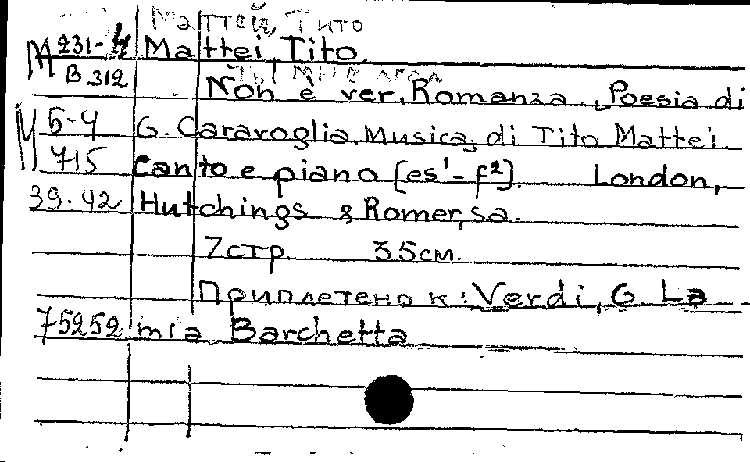 Маттей, Тито
M 231-4 Mattei, Tito.
B 312 Non è ver. Romanza. Poesia di
M 5-4 G. Caravoglia. Musica di Tito Mattei.
715 Canto e piano [es¹-f²]. London,
39.42 Hutchings & Romer, sa.
7стр. 35см.
Приплетено к: Verdi, G. La
75252 mia Barchetta